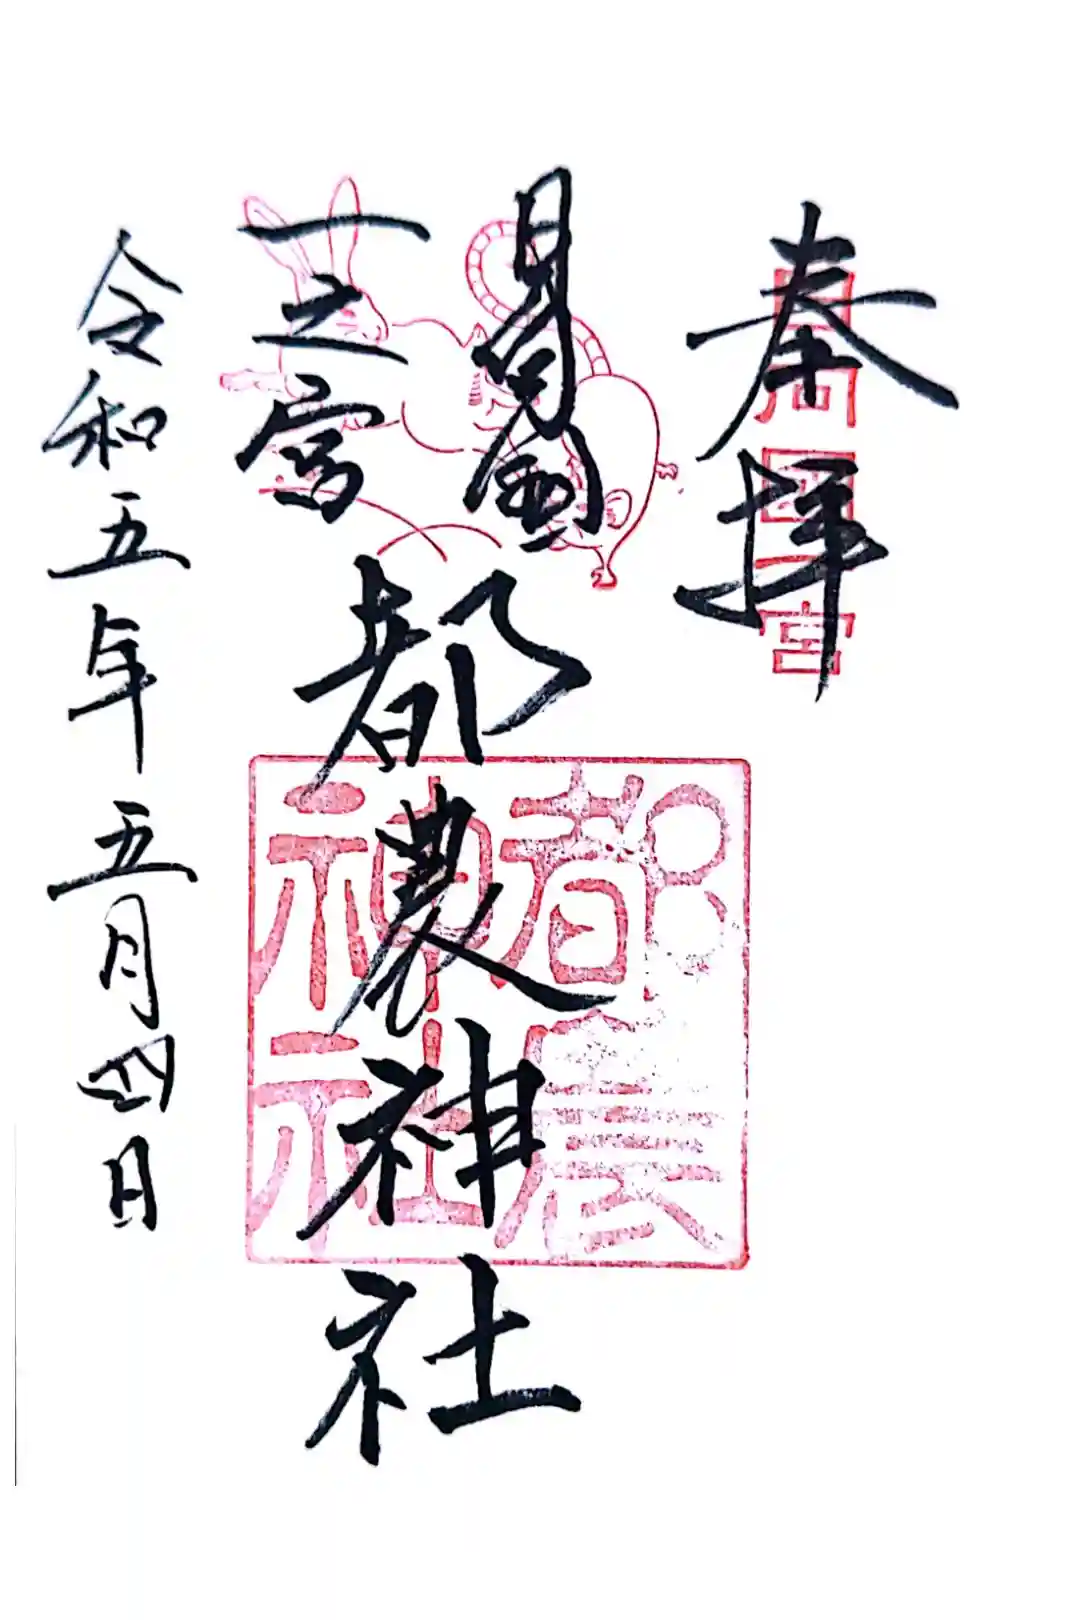 奉拝
日向國一宮
日向國
一之宮
都農神社
都農神社
令和五年五月四日